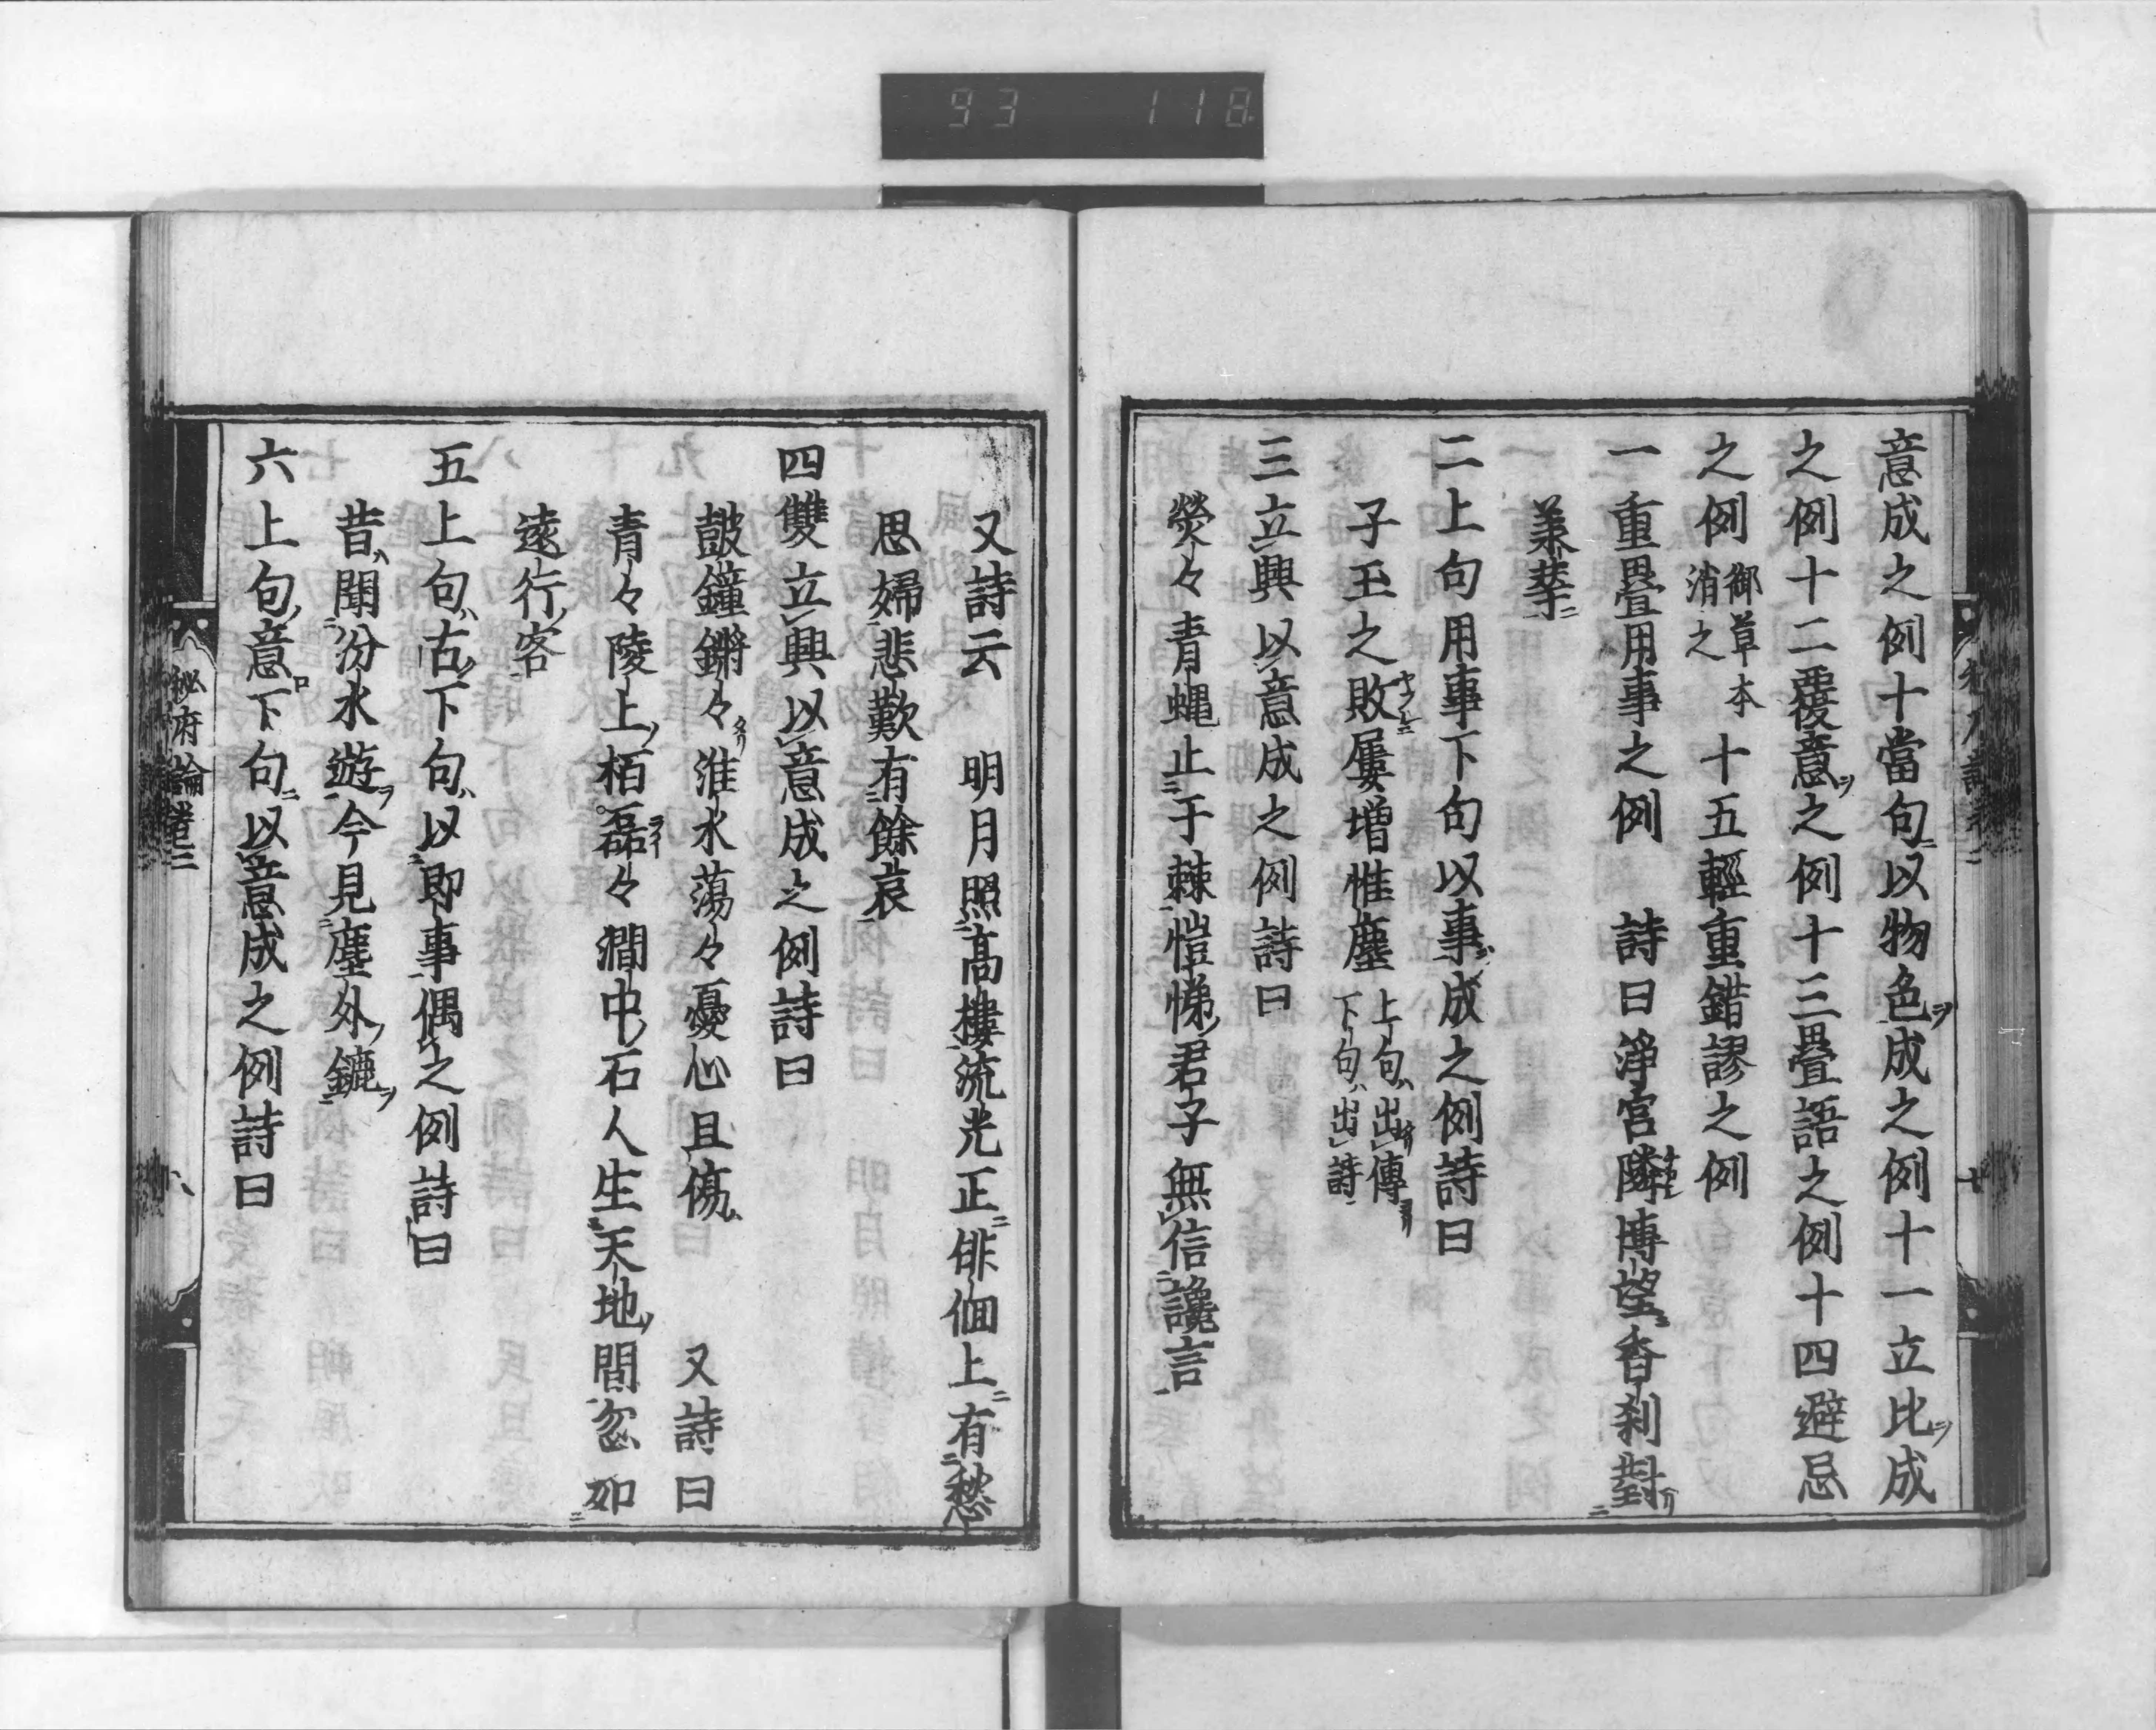 93 118
意成之例十當句以物色成之例十一立比成
之例十二覆意之例十三疊語之例十四避忌
之例御草本消之十五輕重錯謬之例
一重疊用事之例 詩曰淨宮隣博望香刹對
二上句用事下句以事成之例詩曰
子玉之敗屢增惟塵上句出傳下句出詩
三立興以意成之例詩曰
熒々青蝿止于棘愷悌君子無信讒言
又詩云 明月照高樓流光正徘徊上有愁
思婦悲歎有餘哀
四雙立興以意成之例詩曰
皷鐘鏘々淮水蕩々憂心且傷 又詩曰
青々陵上栢磊々澗中石人生天地間忽如
遠行客
五上句古下句以即事偶之例詩曰
昔聞汾水遊今見塵外鑣
六上句意下句以意成之例詩曰
秘府論卷三
八